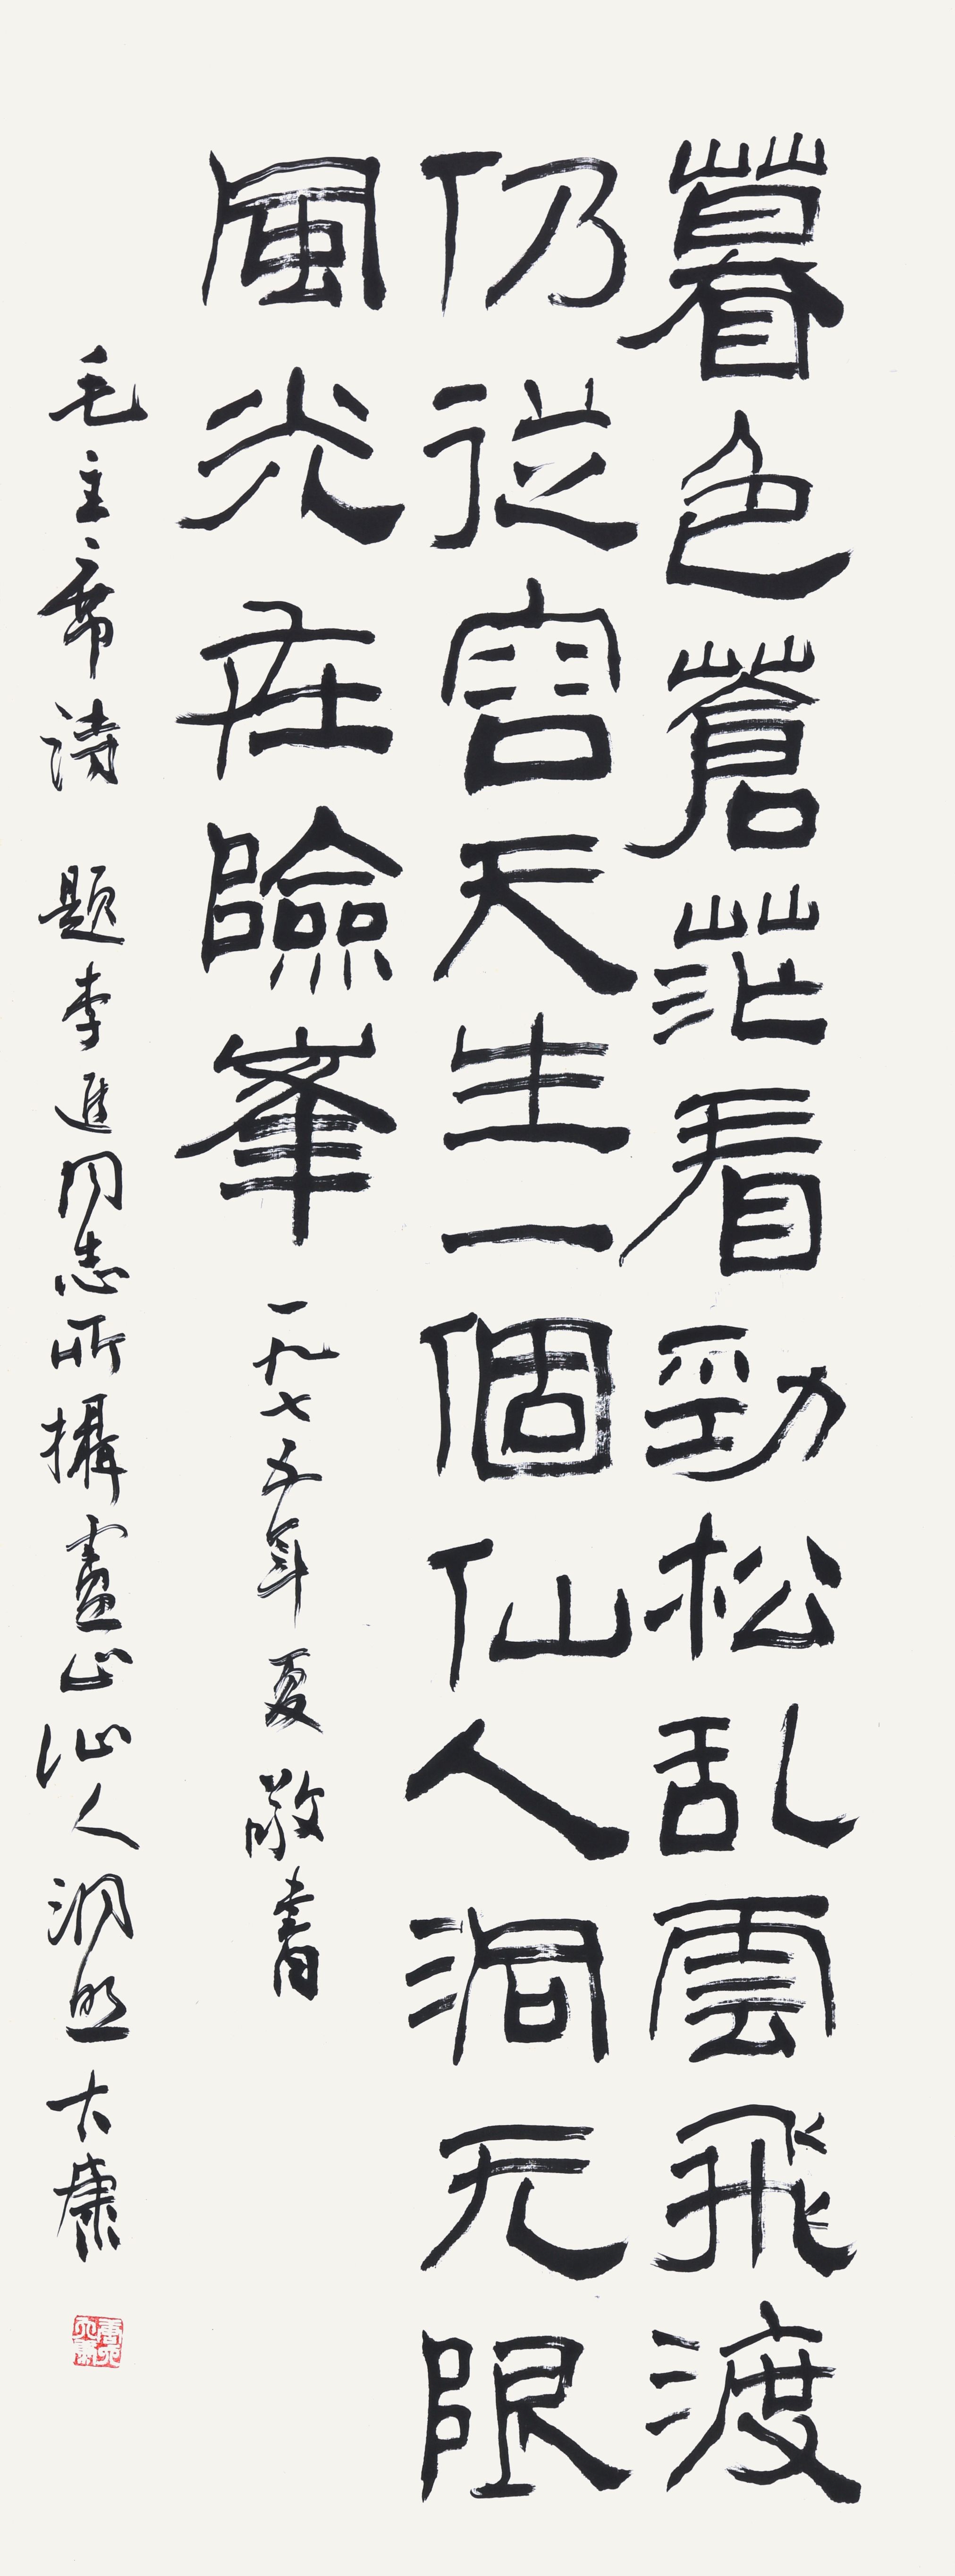 暮色蒼茫看勁松乱雲飛渡
仍從容天生一個仙人洞无限
風光在險峯
一九七五年夏敬書
毛主席詩 題李進同志所攝廬山仙人洞照 大康